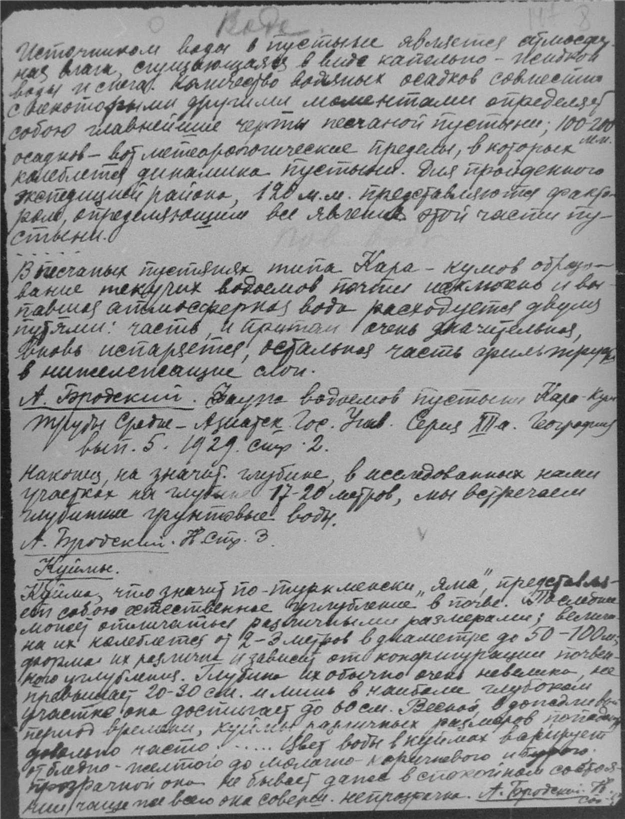 Вода
Источником воды в пустыне является атмосфер-
ная влага, сгущающаяся в виде капельно-жидкой
воды и снега. Количество водяных осадков совместно
с некоторыми другими моментами определяет
собою главнейшие черты песчаной пустыни; 100-200 мм.
осадков – вот метеорологические пределы, в которых
колеблется динамика пустыни. Для пройденного
экспедицией района, 120 м.м. представляются факто-
ром, определяющим все явления этой части пу-
стыни.
В песчаных пустынях типа Кара-кумов образо-
вание текучих водоемов почти исключено и вы-
павшая атмосферная вода расходуется двумя
путями: часть, и притом очень значительная,
вновь испаряется, остальная часть фильтрует
в нижележащие слои.
А. Бродский. Фауна водоемов пустыни Кара-Кум
Труды Средне-Азиатск. Гос. Унив. Серия XII а. География
вып. 5. 1929. стр. 2.
Наконец, на значит. глубине, в исследованных нами
участках на глубине 17-20 метров, мы встречаем
глубинные грунтовые воды.
А. Бродский. Стр. 3.
Куймы.
Куйма, что значит по-туркменски „яма", представля-
ет собою естественное углубление в почве. Последние
может отличаться различными размерами; величи-
на их колеблется от 2-3 метров в диаметре до 50-100 м;
форма их различна и зависит от конфигурации почвен-
ного углубления. Глубина их обычно очень невелика, не
превышает 20-30 см. и лишь в наиболее глубоком
участке она достигает до 60 см. Весной, в дождливый
период времени, куймы различных размеров
довольно часто...... Цвет воды в куймах варьирует
от бледно-желтой до молочно-коричневого и бурого.
прозрачной она не бывает даже в спокойном состоя-
нии, чаще же всего она соверш. непрозрачна. А. Бродский.